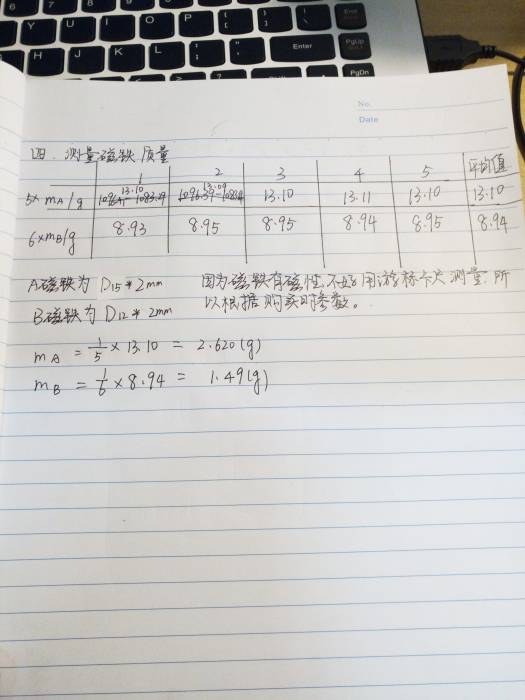 6 7 8 9 0
U I O P
H J K L
Enter
End
PgUp
PgDn
No.
Date
四. 测量磁铁质量
1 2 3 4 5 平均值
5× mA/g 13.10 13.09 13.10 13.11 13.10 13.10
6×mB/g 8.93 8.95 8.95 8.94 8.95 8.94
A磁铁为 D15*2mm 因为磁铁有磁性,不好用游标卡尺测量.所
B磁铁为 D12*2mm 以根据购买时参数。
mA = 1/5 × 13.10 = 2.620(g)
mB = 1/6 × 8.94 = 1.49(g)